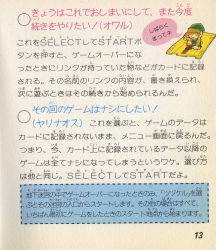 きょうはこれでおしまいにして、また今度
続きをやりたい!(オワル)
しばらく
まってネ
これをSELECTしてSTARTボ
タンを押すと、ゲームオーバーにな
ったときにリンクが持っていた物などがカードに記録
される。その名前のリンクの内容が、書き換えられ、
次に遊ぶときはその続きから始められるんだ。
その回のゲームはナシにしたい!
(ヤリナオス)これを選ぶと、ゲームのデータは
カードに記録されないまま、メニュー画面に戻るんだ。
つまり、今、カード上に記録されているデータ以降の
ゲームは全てナシになってしまうというワケ。選び方
は他と同じ。SELECTしてSTARTだよ。
地下迷宮の中でゲームオーバーになったときのみ、「ツヅケル」を選
ぶとその迷宮の入口からスタートします。その他の場合はすべて、
いちばん最初にゲームをしたときのスタート地点から始まります。
13